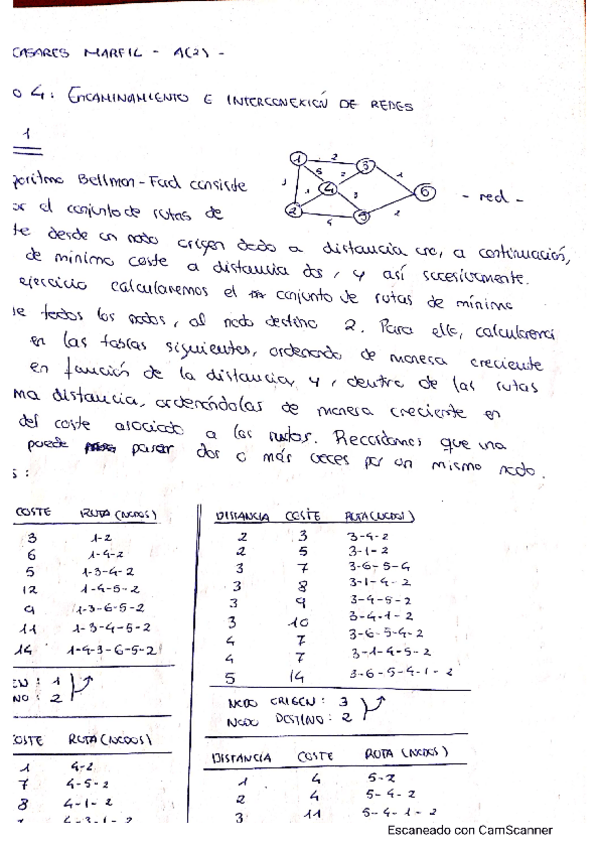 CASARES MARFIL - A(2) -
o 4: ENCAMINAMIENTO E INTERCONEXIÓN DE REDES
1
goritmo Bellman-Ford consiste
or el conjunto de rutas de
te desde un nodo origen dado a distancia uno, a continuación,
de mínimo coste a distancia dos, y así sucesivamente.
ejercicio calcularemos el conjunto de rutas de mínimo
de todos los nodos, al nodo destino 2. Para ello, calcularemos
en las tablas siguientes, ordenando de manera creciente
en función de la distancia, y, dentro de las rutas
ma distancia, ordenándolas de manera creciente en
del coste asociado a las rutas. Recordamos que una
puede pasar dos o más veces por un mismo nodo.
s:
1 2 3 4 5 6
- red -
COSTE RUTA (NODOS)
3 1-2
6 1-4-2
5 1-3-4-2
12 1-4-5-2
9 1-3-6-5-2
11 1-3-4-5-2
14 1-4-3-6-5-2
EN: 1
NO: 2
DISTANCIA COSTE RUTA (NODOS)
2 3 3-4-2
2 5 3-1-2
3 7 3-6-5-4
3 8 3-1-4-2
3 9 3-4-5-2
3 10 3-4-1-2
4 7 3-6-5-4-2
4 7 3-1-4-5-2
5 14 3-6-5-4-1-2
NODO ORIGEN: 3
NODO DESTINO: 2
COSTE RUTA (NODOS)
1 4-2
7 4-5-2
8 4-1-2
4-3-1-2
DISTANCIA COSTE RUTA (NODOS)
1 4 5-2
2 4 5-4-2
3 11 5-4-1-2
Escaneado con CamScanner